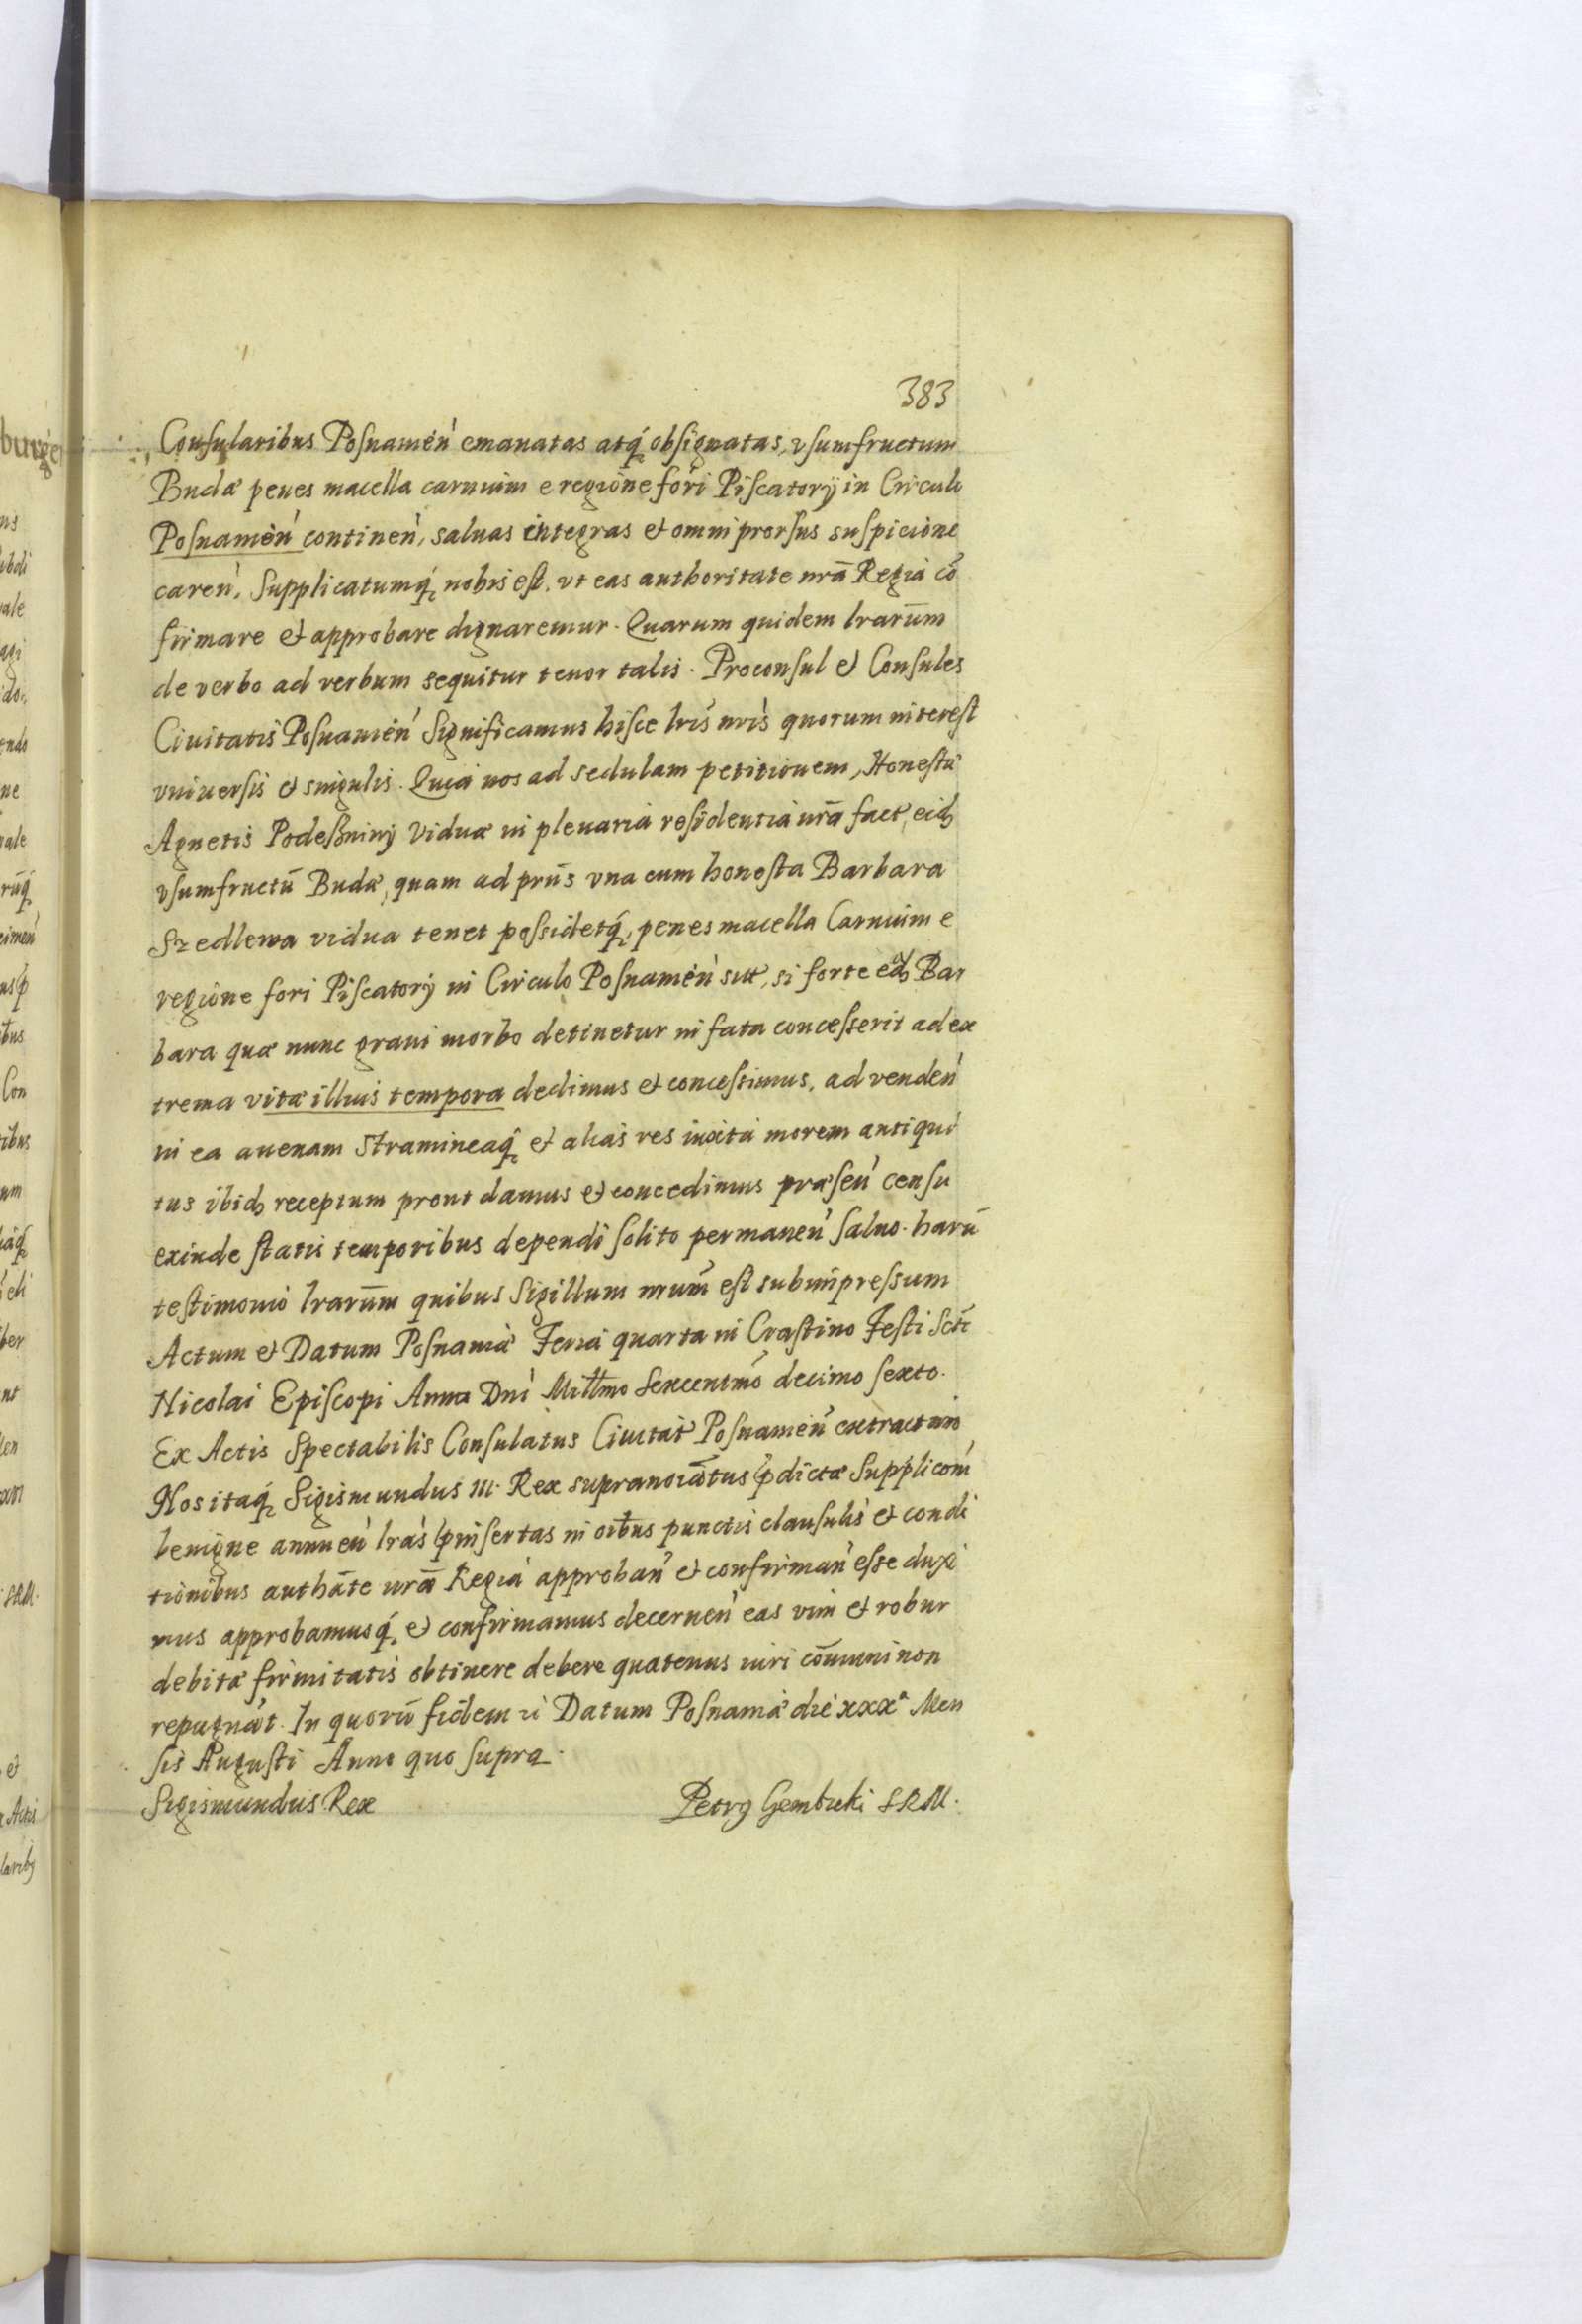 383
Consularibus Posnamen̄ emanatas atq́ȝ obsignatas, vsumfructum
Budæ penes macella carnium e regione fori Piscatorÿ in Circulo
Posnamen̄ continen̄, saluas integras et omni prorsus suspicione
caren̄, Supplicatumq́ȝ nobis est, vt eas authoritate nr̄a Regia cō
firmare et approbare dignaremur. Quarum quidem lrarūm
de verbo ad verbum sequitur tenor talis. Proconsul et Consules
Ciuitatis Posnamen̄ Significamus hisce lrīs nrīs quorum interest
vniuersis et singulis. Quia nos ad sedulam petitionem, Honestæ
Agnetis Podeszniny Viduæ in plenaria residentia nr̄a fact, eidȝ
vsumfructū Budæ, quam ad prūs vna cum honesta Barbara
Szedlewa vidua tenet possidetq́ȝ, penes macella Carnium e
regione fori Piscatorÿ in Circulo Posnamen̄ sitæ, si forte eadȝ Bar
bara quæ nunc graui morbo detinetur in fata concesserit ad ex
trema vitæ illius tempora dedimus et concessimus, ad venden̄
in ea auenam Stramineaq́ȝ et alias res iuxta morem antiqui
tus ibidȝ receptum prout damus et concedimus præsen̄ censu
exinde statis temporibus dependi solito permanen̄ saluo. harū
testimonio lrarūm quibus Sigillum nrūm est subimpressum
Actum et Datum Posnaniæ Feria quarta in Crastino Festi Sctī
Nicolai Episcopi Anno Dnī Millmo Sexcentmō decimo sexto.
Ex Actis Spectabilis Consulatus Ciuitat Posnamen̄ extractum
Nos itaq́ȝ Sigismundus III. Rex supranoīatus p̄dictæ Suppliconi
benigne annuen̄ lrās p̄insertas in oibus punctis clausulis et condi
tionibus authāte nr̄a Regia approban̄ et confirman̄ esse duxi
mus approbamusq́ȝ et confirmamus decernen̄ eas vim et robur
debitæ firmitatis obtinere debere quatenus iuri cōmuni non
repugnāt. In quorū fidem Datum Posnaniæ die xxxa Men
sis Augusti Anno quo supra.
Sigismundus Rex Petrꝰ Gembicki SRM.